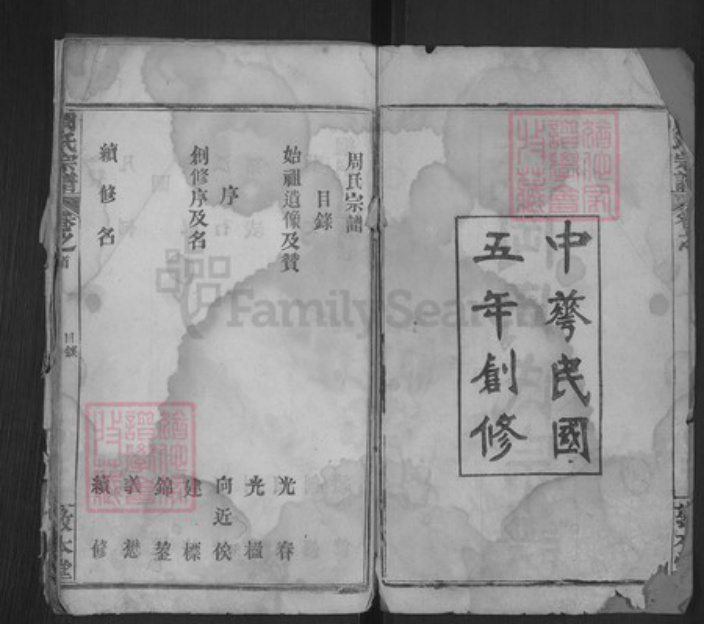 中華民國
五年創修
周氏宗譜
目錄
始祖遺像及贊
光春
光楹
序
向近俟
創修序及名
建標
錦
義
續修名
續修
周氏宗譜
卷之首
目錄
敦本堂
FamilySearch